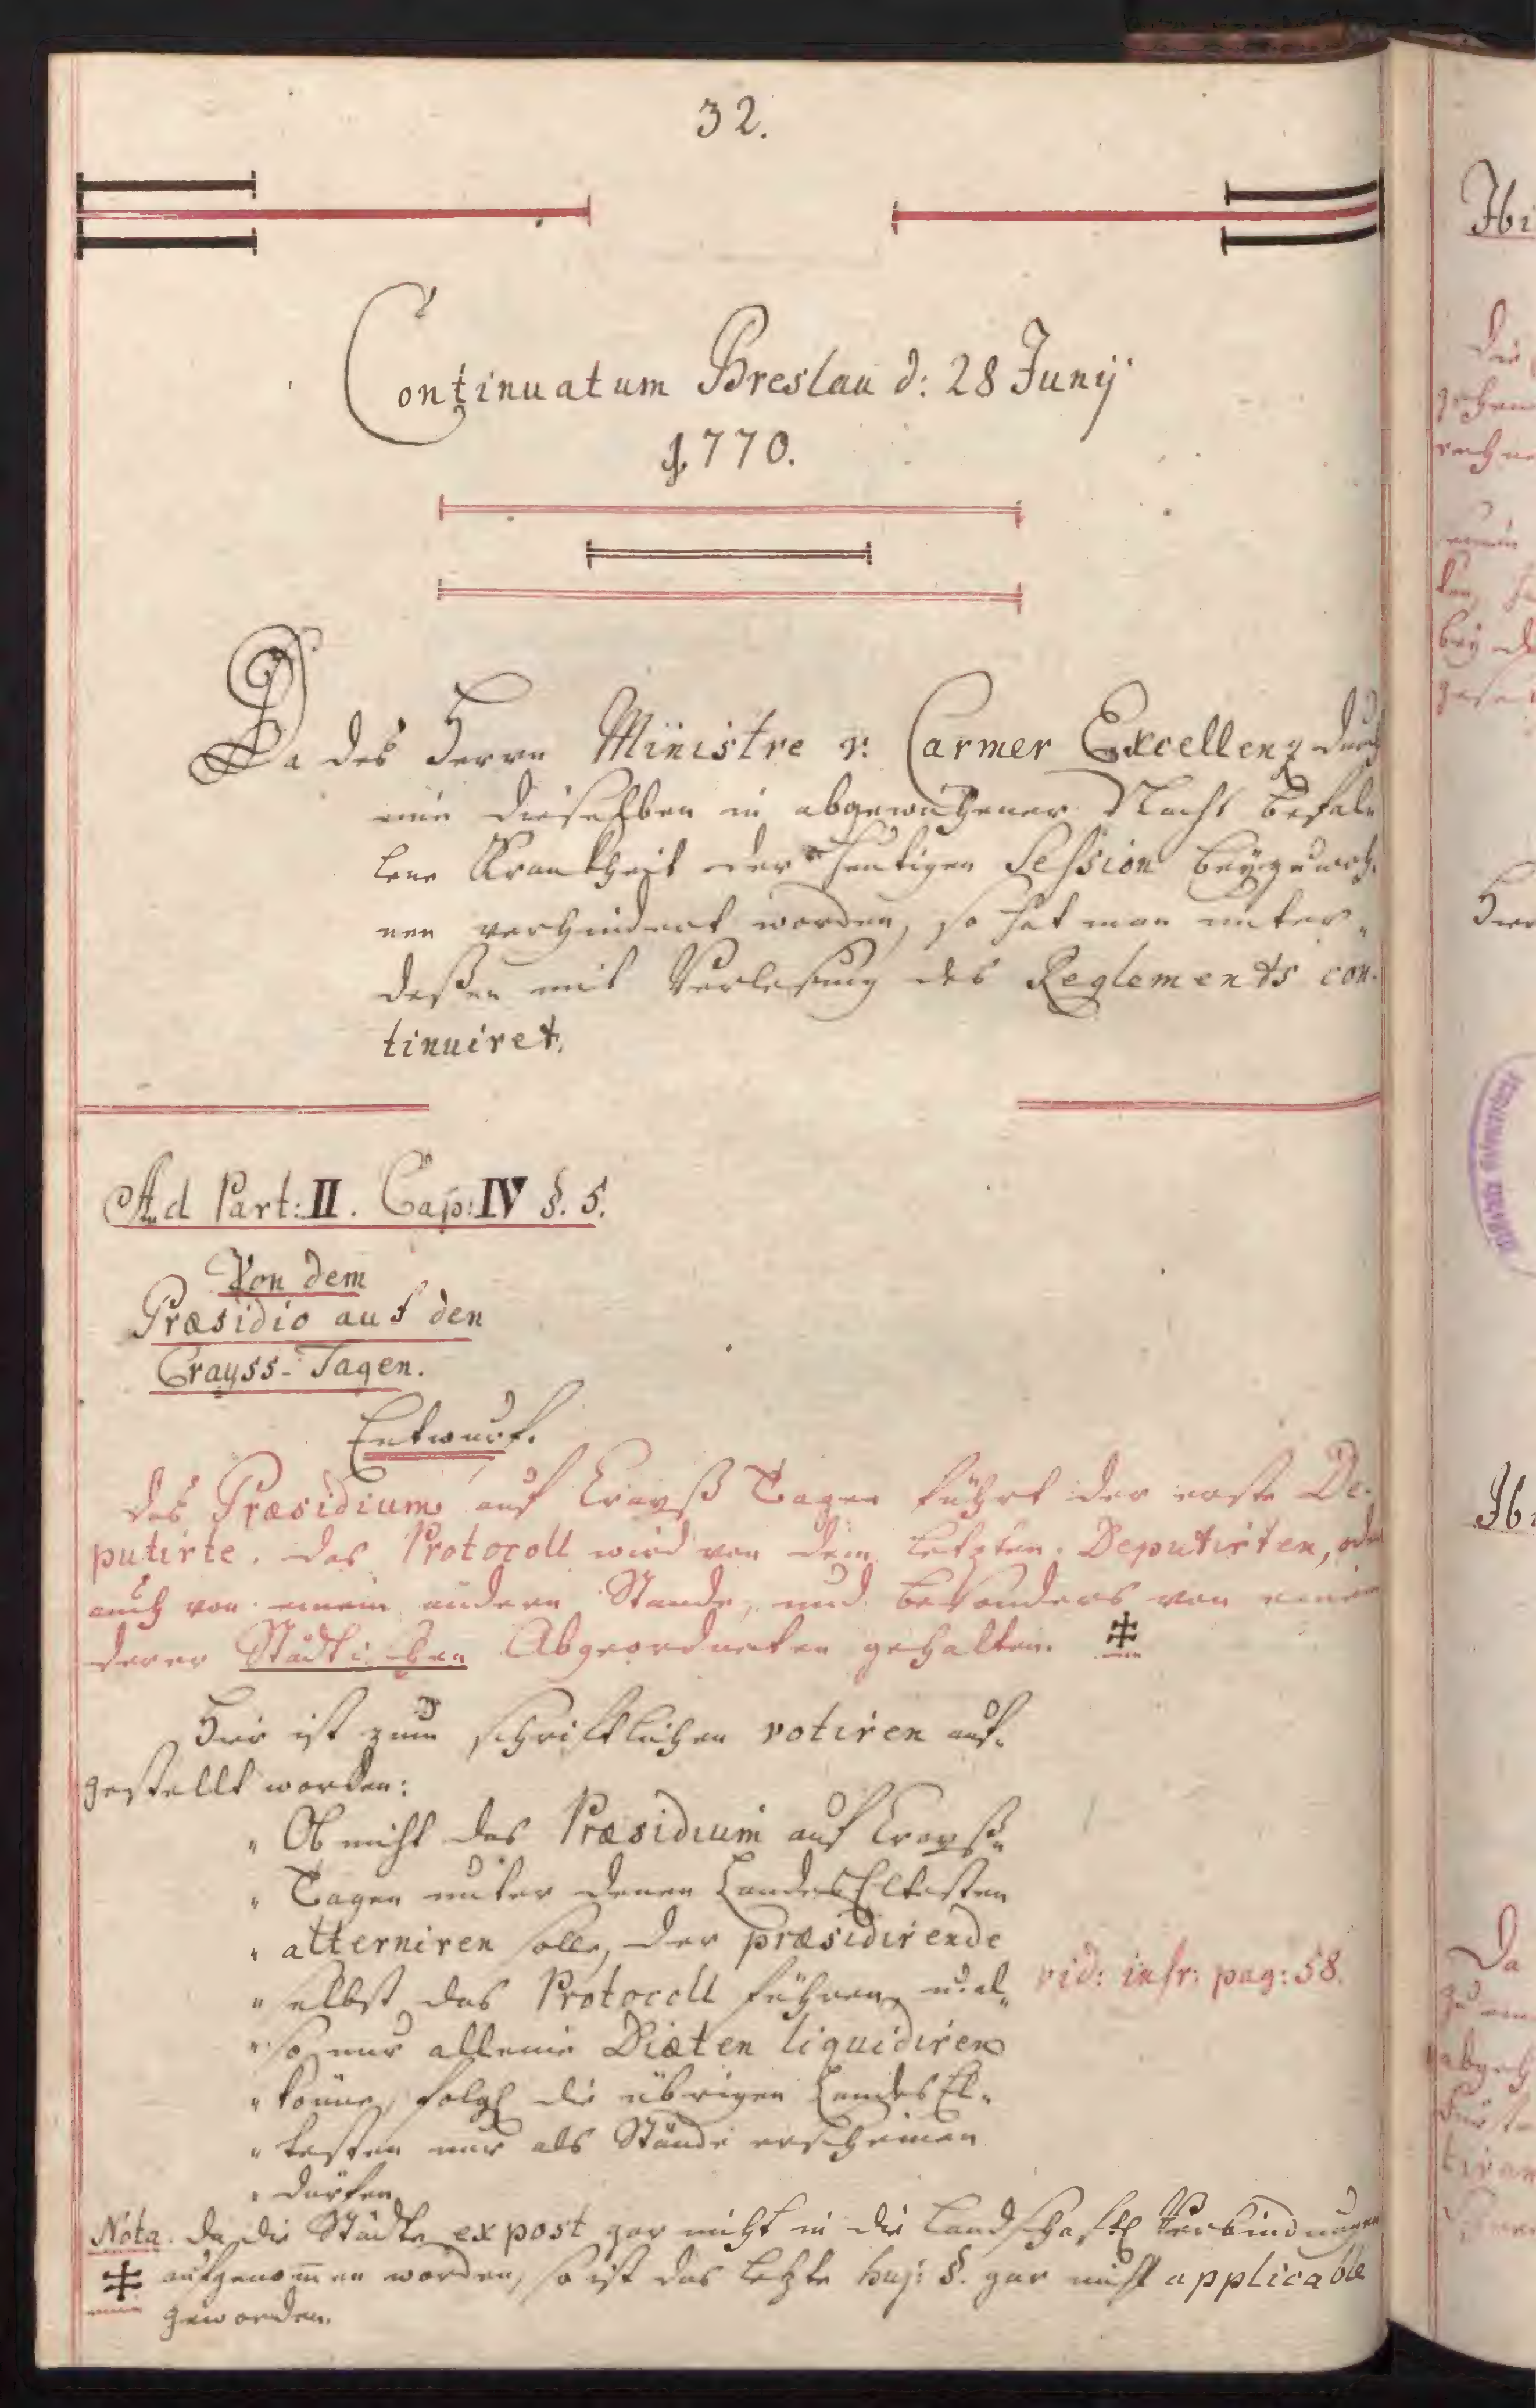 32.
Continuatum Breslau d: 28 Junij
1770.
Da des Herrn Ministre v: Carmer Excellenz durch
eine dieselben in abgewichener Nacht befal„
lene Krankheit der heutigen Session beyzuwoh„
nen verhindert worden, so hat man unter„
deßen mit Verlesung des Reglements con„
tinuiret.
Ad Part: II. Cap: IV §. 5.
Von dem
Præsidio auf den
Crayss-Tagen.
Entwurf.
Das Præsidium auf Crayß Tagen führt der erste De„
putirte. Das Protocoll wird von dem letzten Deputirten, oder
auch von einem andern Stande, und besonders von einem
derer Städtischen Abgeordneten gehalten. ‡
Hier ist zum schriftlichen votiren auf„
gestellt worden:
„ Ob nicht das Præsidium auf Crayß„
„ Tagen unter denen Landes Eltesten
„ alterniren solle, der præsidirende
„ selbst das Protocoll führen, u: al„
„ so nur alleine Diæten liquidiren
„ könne, folgl die übrigen Landes El„
„ testen nur als Stände erscheinen
„ dürfen.
vid: infr: pag: 58.
Nota. Da die Städte ex post gar nicht in die Landschaftl Verbindungen
‡ aufgenom̄en worden, so ist das letzte huj: §. gar nicht applicable
geworden.